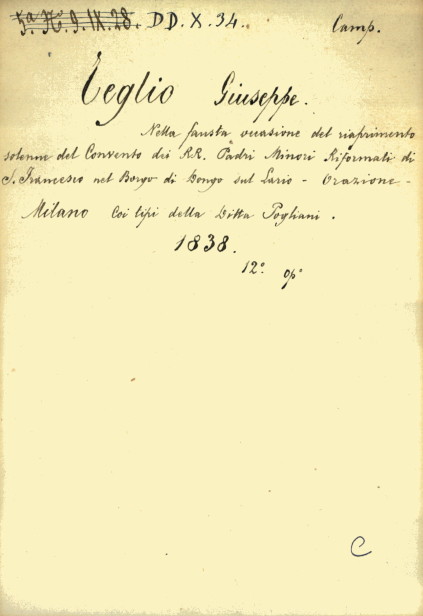 5ª. Nº. 9. IX. 28. DD. X. 34. Camp.
Teglio Giuseppe.
Nella fausta occasione del riaprimento
solenne del Convento dei RR. Padri Minori Riformati di
S. Francesco nel Borgo di Dongo sul Lario - Orazione -
Milano Coi tipi della Ditta Pogliani.
1838.
12º. opº
C